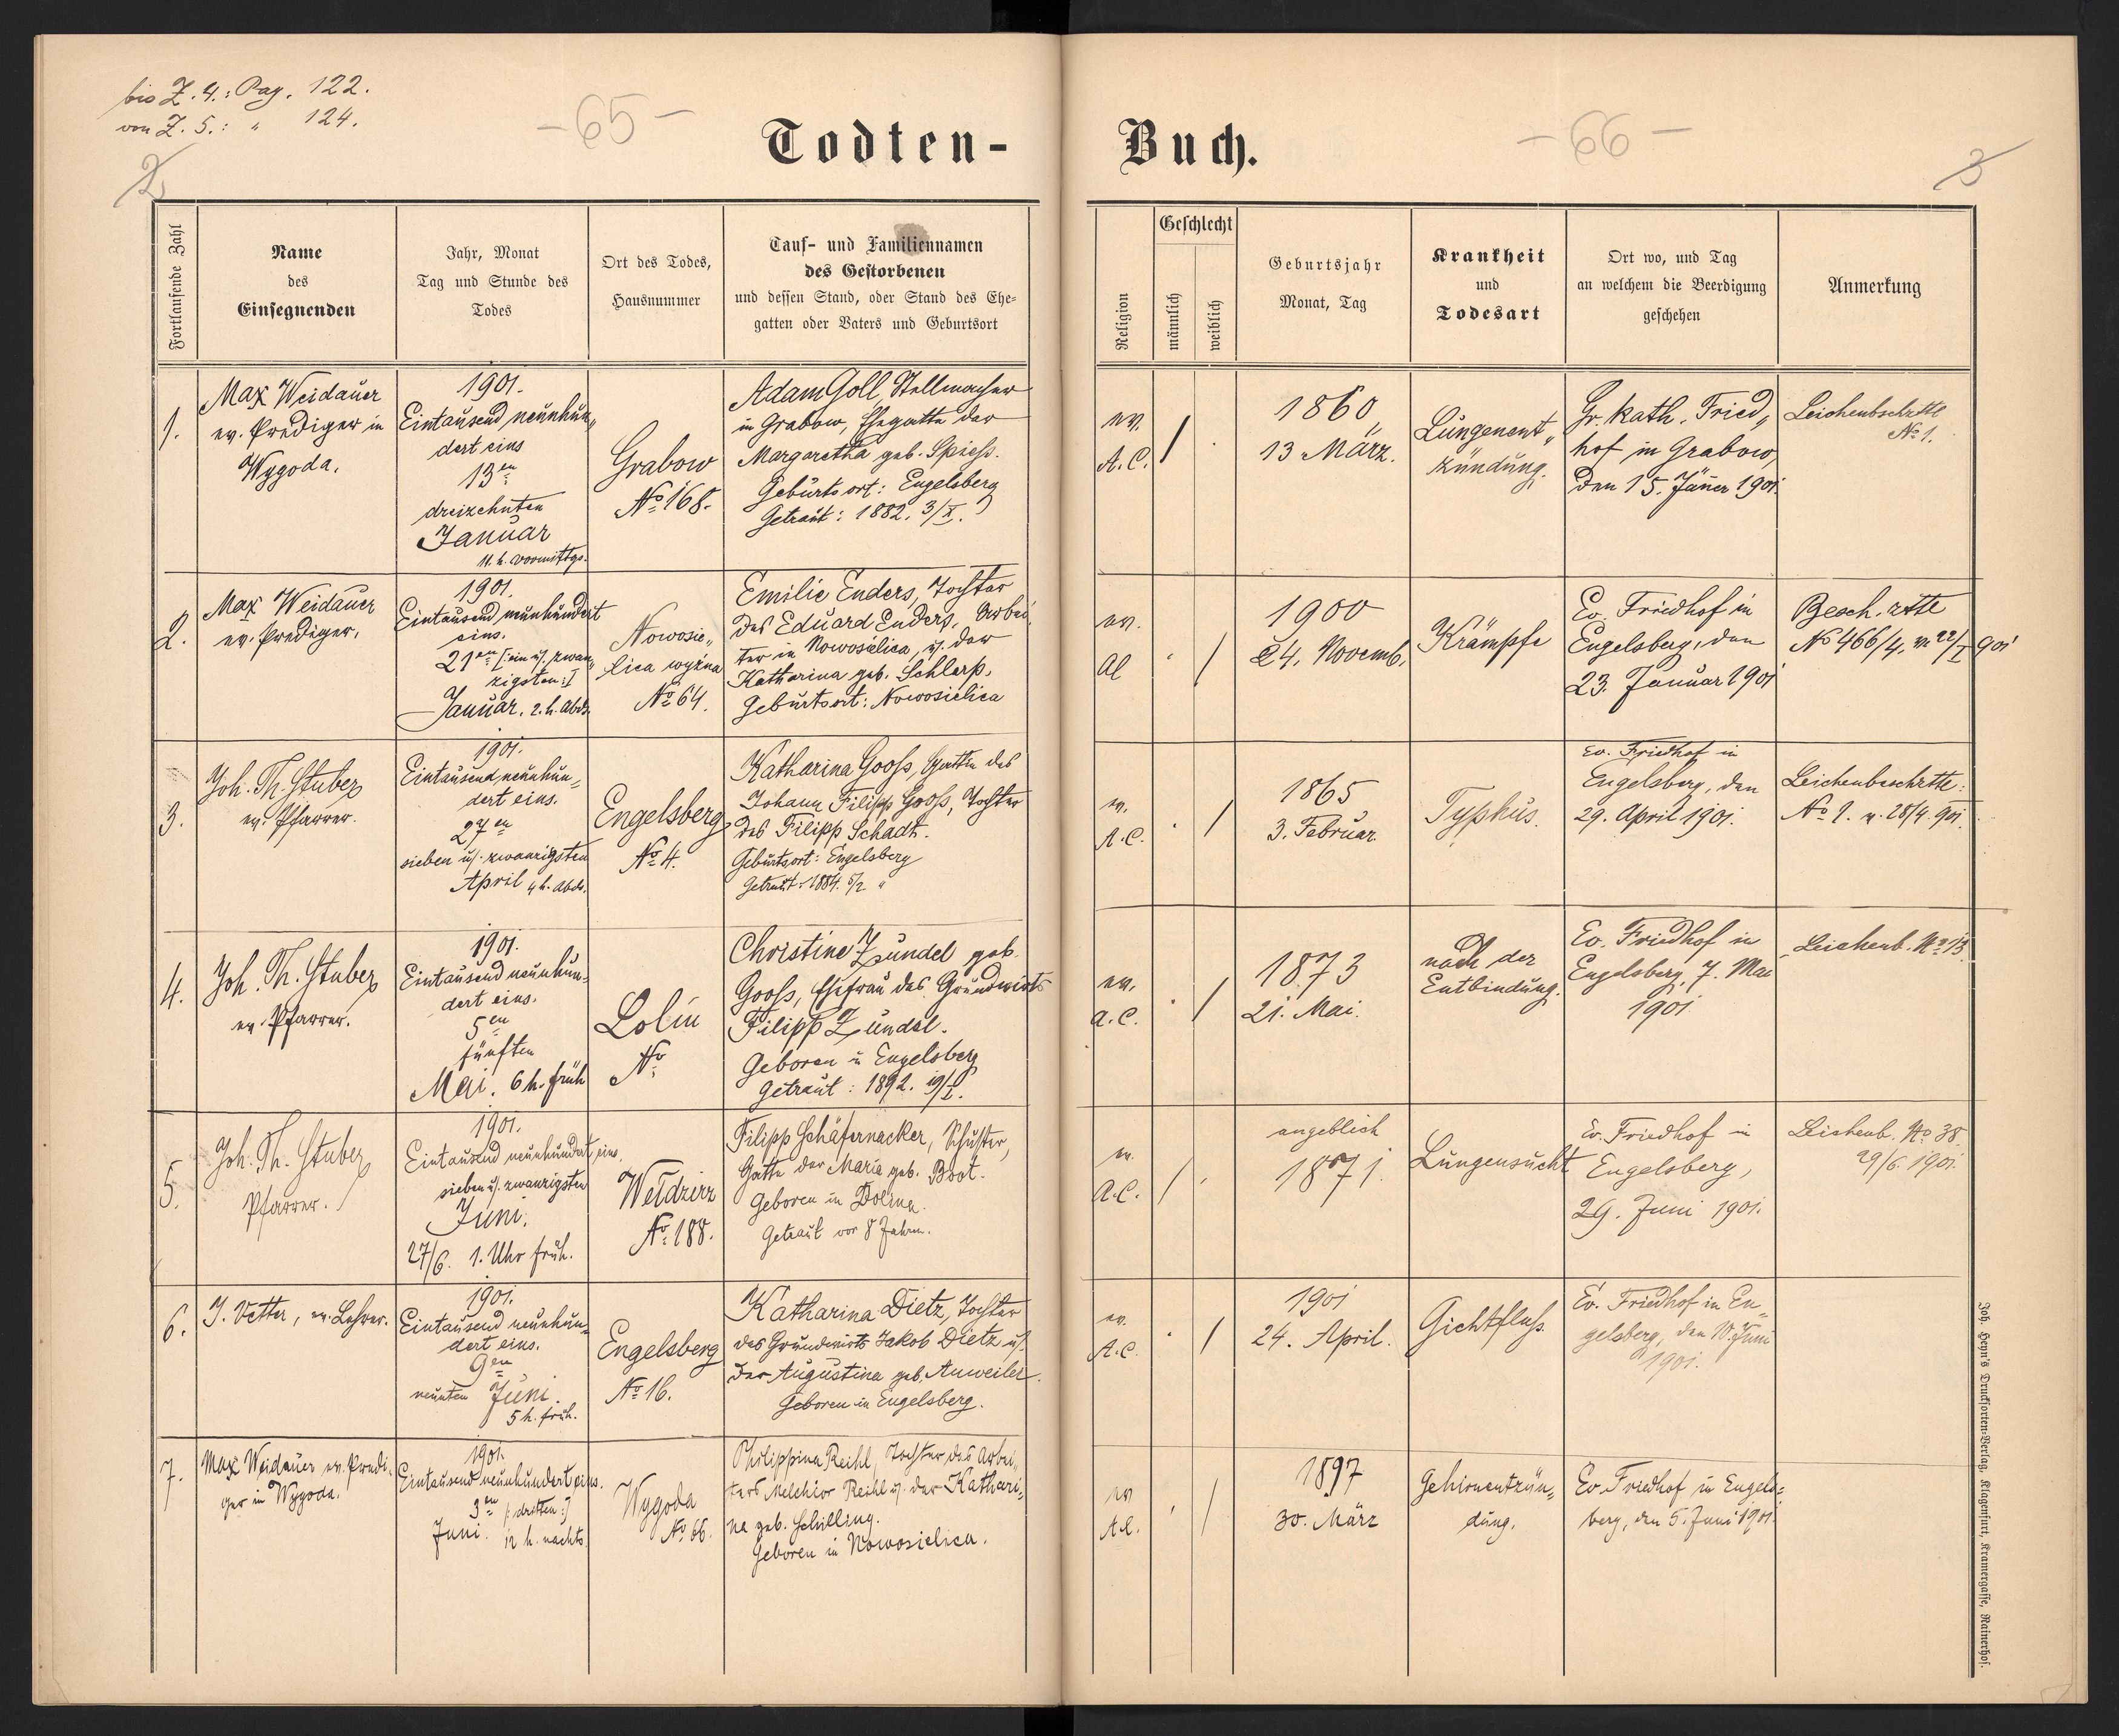 bis Z. 4.: Pag. 122.
von Z. 5.: " 124.
-65-
2
Todten-
Fortlaufende Zahl
Name
des
Einsegnenden
Jahr, Monat
Tag und Stunde des
Todes
Ort des Todes,
Hausnummer
Tauf- und Familiennamen
des Gestorbenen
und dessen Stand, oder Stand des Ehe-
gatten oder Vaters und Geburtsort
1.
Max Weidauer
ev. Prediger in
Wygoda.
1901.
Eintausend neunhun„
dert eins
13en
dreizehnten
Januar
11. h. vormittgs.
Grabow
No 168.
Adam Goll, Stellmacher
in Grabow, Ehegatte der
Margaretha geb. Spiess.
Geburtsort: Engelsberg
Getraut: 1882. 3/X.
2.
Max Weidauer
ev. Prediger.
1901.
Eintausend neunhundert
eins.
21en [: ein u. zwan„
zigsten :]
Januar. 2. h. Abds.
Nowosie„
lica wyżna
No 64.
Emilie Enders, Tochter
des Eduard Enders, Arbei
ter in Nowosielica, u. der
Katharina geb. Schlerp.
Geburtsort: Nowosielica
3.
Joh. Th. Stuber
ev. Pfarrer.
1901.
Eintausend neunhun„
dert eins.
27en
sieben u. zwanzigsten
April 4 h. abds.
Engelsberg
No 4.
Katharina Gooß, Gattin des
Johann Filipp Gooß, Tochter
des Filipp Schadt.
Geburtsort: Engelsberg
Getraut: 1884. 5/2. "
4.
Joh. Th. Stuber
ev. Pfarrer.
1901.
Eintausend neunhun„
dert eins.
5en
fünften
Mai. 6 h. früh
Lolin
No
Christine Zundel geb.
Gooß, Ehefrau des Grundwirts
Filipp Zundel.
Geboren in Engelsberg
Getraut: 1892. 19/I.
5.
Joh. Th. Stuber
Pfarrer.
1901.
Eintausend neunhundert eins.
sieben u. zwanzigsten
Juni.
27/6. 1. Uhr früh.
Weldzirz
No 188.
Filipp Schäfernacker, Schuster,
Gatte der Maria geb. Boot.
Geboren in Dolina.
Getraut vor 8 Jahren.
6.
J. Vetter, ev. Lehrer.
1901.
Eintausend neunhun„
dert eins.
9en
neunten Juni.
5 h. früh.
Engelsberg
No 16.
Katharina Dietz, Tochter
des Grundwirts Jakob Dietz u.
der Augustina geb. Anweiler.
Geboren in Engelsberg.
7.
Max Weidauer ev. Predi„
ger in Wygoda.
1901.
Eintausend neunhundert eins.
3en [: dritten :]
Juni. 12 h. nachts.
Wygoda
No 66.
Philippina Reihl, Tochter des Arbei„
ters Melchior Reihl u. der Kathari„
na geb. Schilling.
Geboren in Nowosielica.
Buch.
-66-
3
Religion
Geschlecht
männlich
weiblich
Geburtsjahr
Monat, Tag
Krankheit
und
Todesart
Ort wo, und Tag
an welchem die Beerdigung
geschehen
Anmerkung
ev.
A.C.
/
1860
13 März.
Lungenent„
zündung.
Gr. kath. Fried„
hof in Grabow,
den 15. Jäner 1901.
Leichenbschztte
No 1.
ev.
AC
/
1900
24. Novemb.
Krämpfe
Ev. Friedhof in
Engelsberg, den
23. Januar 1901
Besch.ztte
No 466/4. v. 22/I 901
ev.
A.C.
/
1865
3. Februar
Typhus.
ev. Friedhof in
Engelsberg, den
29. April 1901.
Leichenbeschztte:
28/4. 901.
ev.
A.C.
/
1873
21. Mai.
nach der
Entbindung.
Ev. Friedhof in
Engelsberg, 7. Mai
1901
Leichenb. No 13.
ev.
A.C.
/
angeblich
1871.
Lungensucht
Ev. Friedhof in
Engelsberg,
29. Juni 1901.
Leichenb. No 38.
29/6. 1901.
ev.
A.C.
/
1901
24. April.
Gichtfluß.
Ev. Friedhof in En„
gelsberg, den 10. Juni
1901.
ev
A.C.
/
1897
30. März
Gehirnentzün„
dung.
Ev. Friedhof in Engels„
berg, den 5. Juni 1901.
Joh. Heyn's Drucksorten-Verlag, Klagenfurt, Kramergasse, Rainerhof.